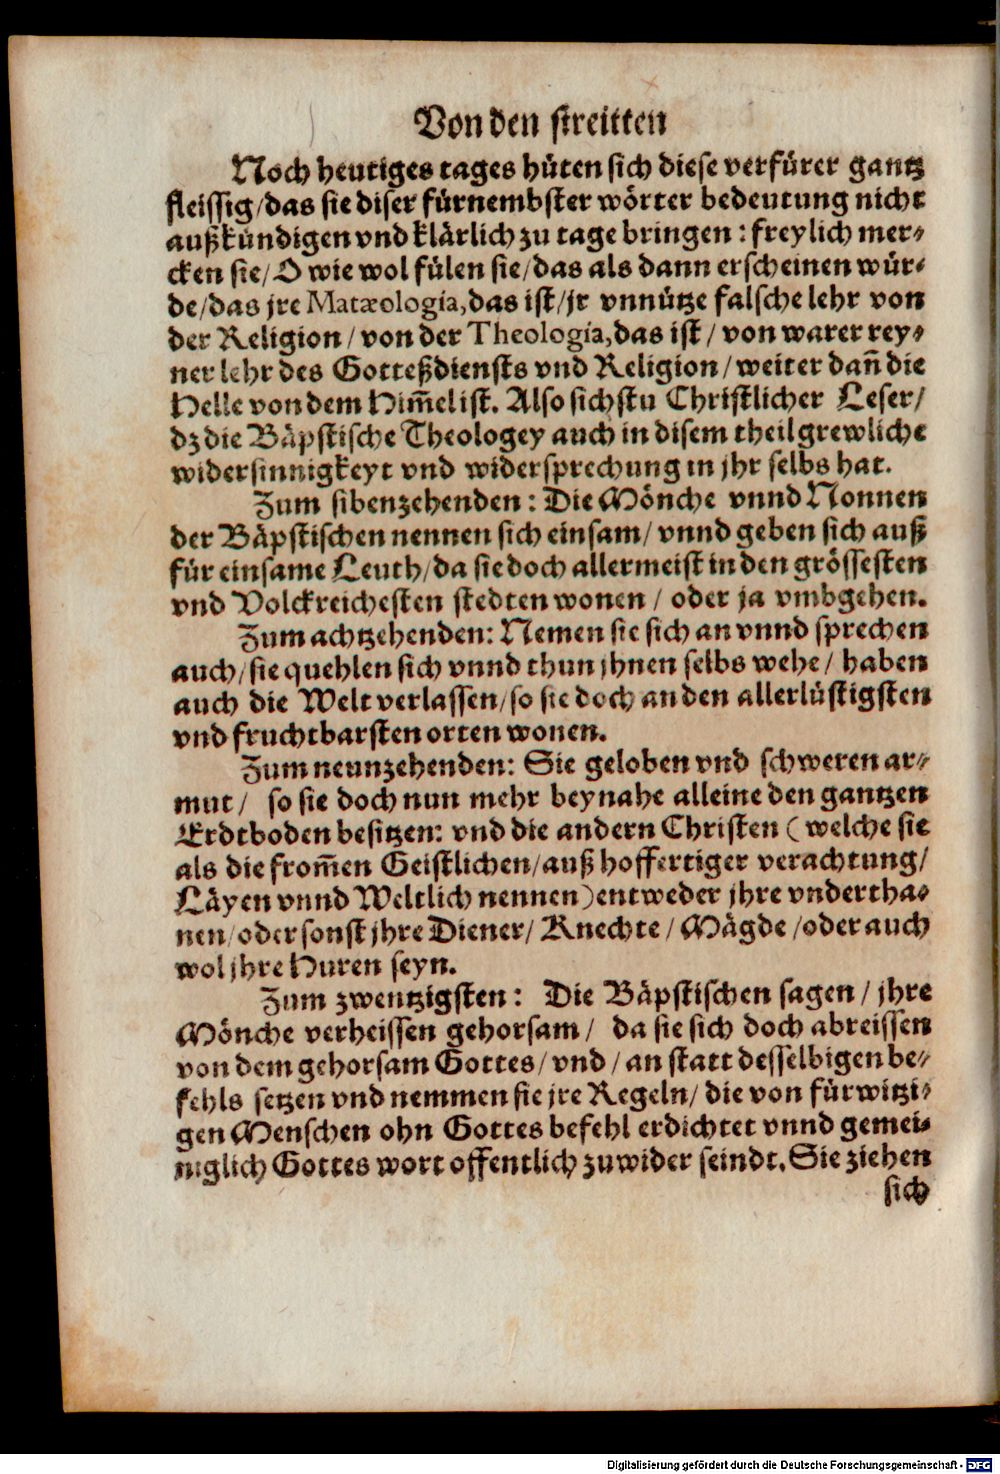 Von den streitten
Noch heutiges tages hüten sich diese verfürer gantz
fleissig/das sie diser fürnembster wörter bedeutung nicht
außkündigen vnd klärlich zu tage bringen : freylich mer-
cken sie/ O wie wol fülen sie/das als dann erscheinen wür-
de/das jre Matæologia,das ist/jr vnnütze falsche lehr von
der Religion/ von der Theologia,das ist / von warer rey-
ner lehr des Gotteßdiensts vnd Religion/weiter dañ die
Helle von dem Him̃el ist. Also sichstu Christlicher Leser/
dz die Bäpstische Theologey auch in disem theil grewliche
widersinnigkeyt vnd widersprechung in jhr selbs hat.
Zum sibenzehenden : Die Mönche vnnd Nonnen
der Bäpstischen nennen sich einsam/ vnnd geben sich auß
für einsame Leuth/da sie doch allermeist in den grössesten
vnd Volckreichesten stedten wonen / oder ja vmbgehen.
Zum achtzehenden: Nemen sie sich an vnnd sprechen
auch/sie quehlen sich vnnd thun jhnen selbs wehe/ haben
auch die Welt verlassen/so sie doch an den allerlüstigsten
vnd fruchtbarsten orten wonen.
Zum neunzehenden: Sie geloben vnd schweren ar-
mut/ so sie doch nun mehr beynahe alleine den gantzen
Erdtboden besitzen: vnd die andern Christen ( welche sie
als die from̃en Geistlichen/auß hoffertiger verachtung/
Läyen vnnd Weltlich nennen)entweder jhre vndertha-
nen/oder sonst jhre Diener/ Knechte / Mägde /oder auch
wol jhre Huren seyn.
Zum zwentzigsten : Die Bäpstischen sagen / jhre
Mönche verheissen gehorsam/ da sie sich doch abreissen
von dem gehorsam Gottes/ vnd / an statt desselbigen be-
fehls setzen vnd nemmen sie jre Regeln/ die von fürwitzi-
gen Menschen ohn Gottes befehl erdichtet vnnd gemei-
niglich Gottes wort offentlich zuwider seindt. Sie ziehen
sich
Digitalisierung gefördert durch die Deutsche Forschungsgemeinschaft - DFG